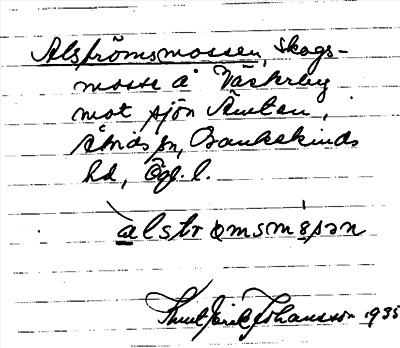 Alströmsmossen, skogs-
mosse å Västerby
mot sjön Ämten,
Åtvids sn, Bankekinds
hd, Ög. l.
alstrømsmåsən
Knut Erik Johansson 1935